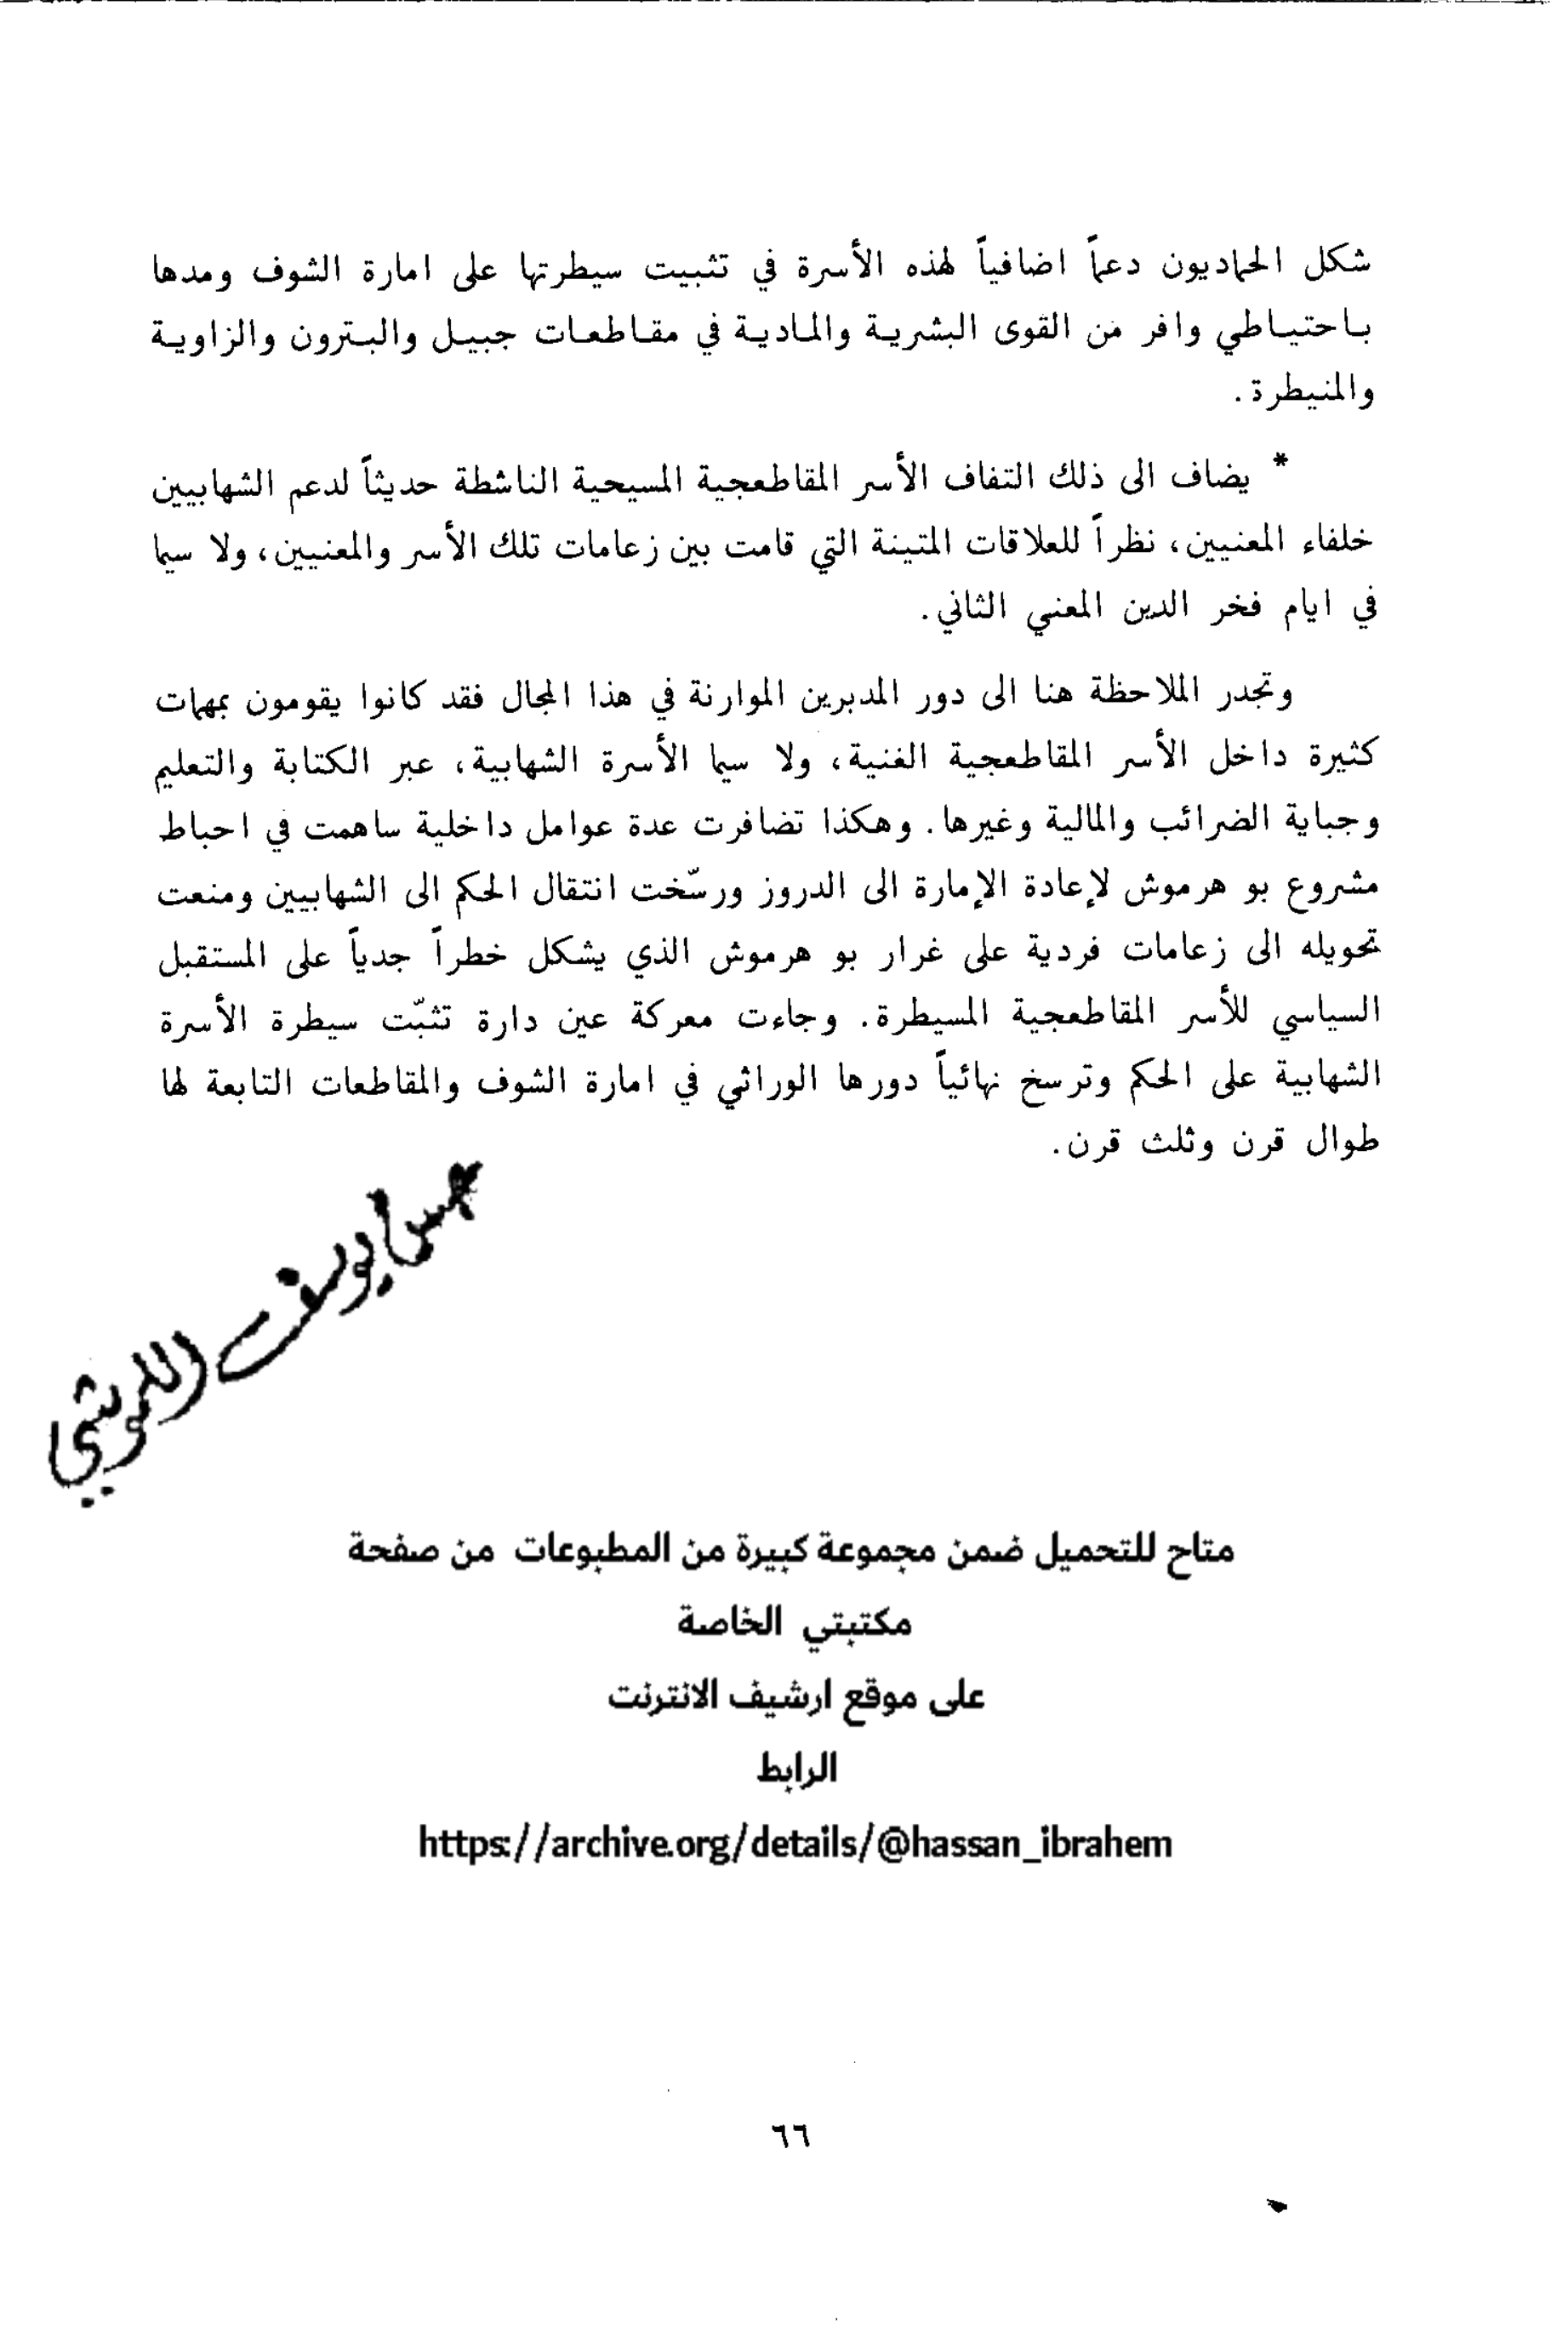 شكل الحماديون دعماً اضافياً لهذه الأسرة في تثبيت سيطرتها على امارة الشوف ومدها
باحتياطي وافر من القوى البشرية والمادية في مقاطعات جبيل والبترون والزاوية
والمنيطرة.
* يضاف الى ذلك التفاف الأسر المقاطعجية المسيحية الناشطة حديثاً لدعم الشهابيين
خلفاء المعنيين، نظراً للعلاقات المتينة التي قامت بين زعامات تلك الأسر والمعنيين، ولا سيما
في ايام فخر الدين المعني الثاني.
وتجدر الملاحظة هنا الى دور المدبرين الموارنة في هذا المجال فقد كانوا يقومون بمهمات
كثيرة داخل الأسر المقاطعجية الغنية، ولا سيما الأسرة الشهابية، عبر الكتابة والتعليم
وجباية الضرائب والمالية وغيرها. وهكذا تضافرت عدة عوامل داخلية ساهمت في احباط
مشروع بو هرموش لإعادة الإمارة الى الدروز ورسّخت انتقال الحكم الى الشهابيين ومنعت
تحويله الى زعامات فردية على غرار بو هرموش الذي يشكل خطراً جدياً على المستقبل
السياسي للأسر المقاطعجية المسيطرة. وجاءت معركة عين دارة تثبّت سيطرة الأسرة
الشهابية على الحكم وترسخ نهائياً دورها الوراثي في امارة الشوف والمقاطعات التابعة لها
طوال قرن وثلث قرن.
يوسف
متاح للتحميل ضمن مجموعة كبيرة من المطبوعات من صفحة
مكتبتي الخاصة
على موقع ارشيف الانترنت
الرابط
https://archive.org/details/@hassan_ibrahem
٦٦